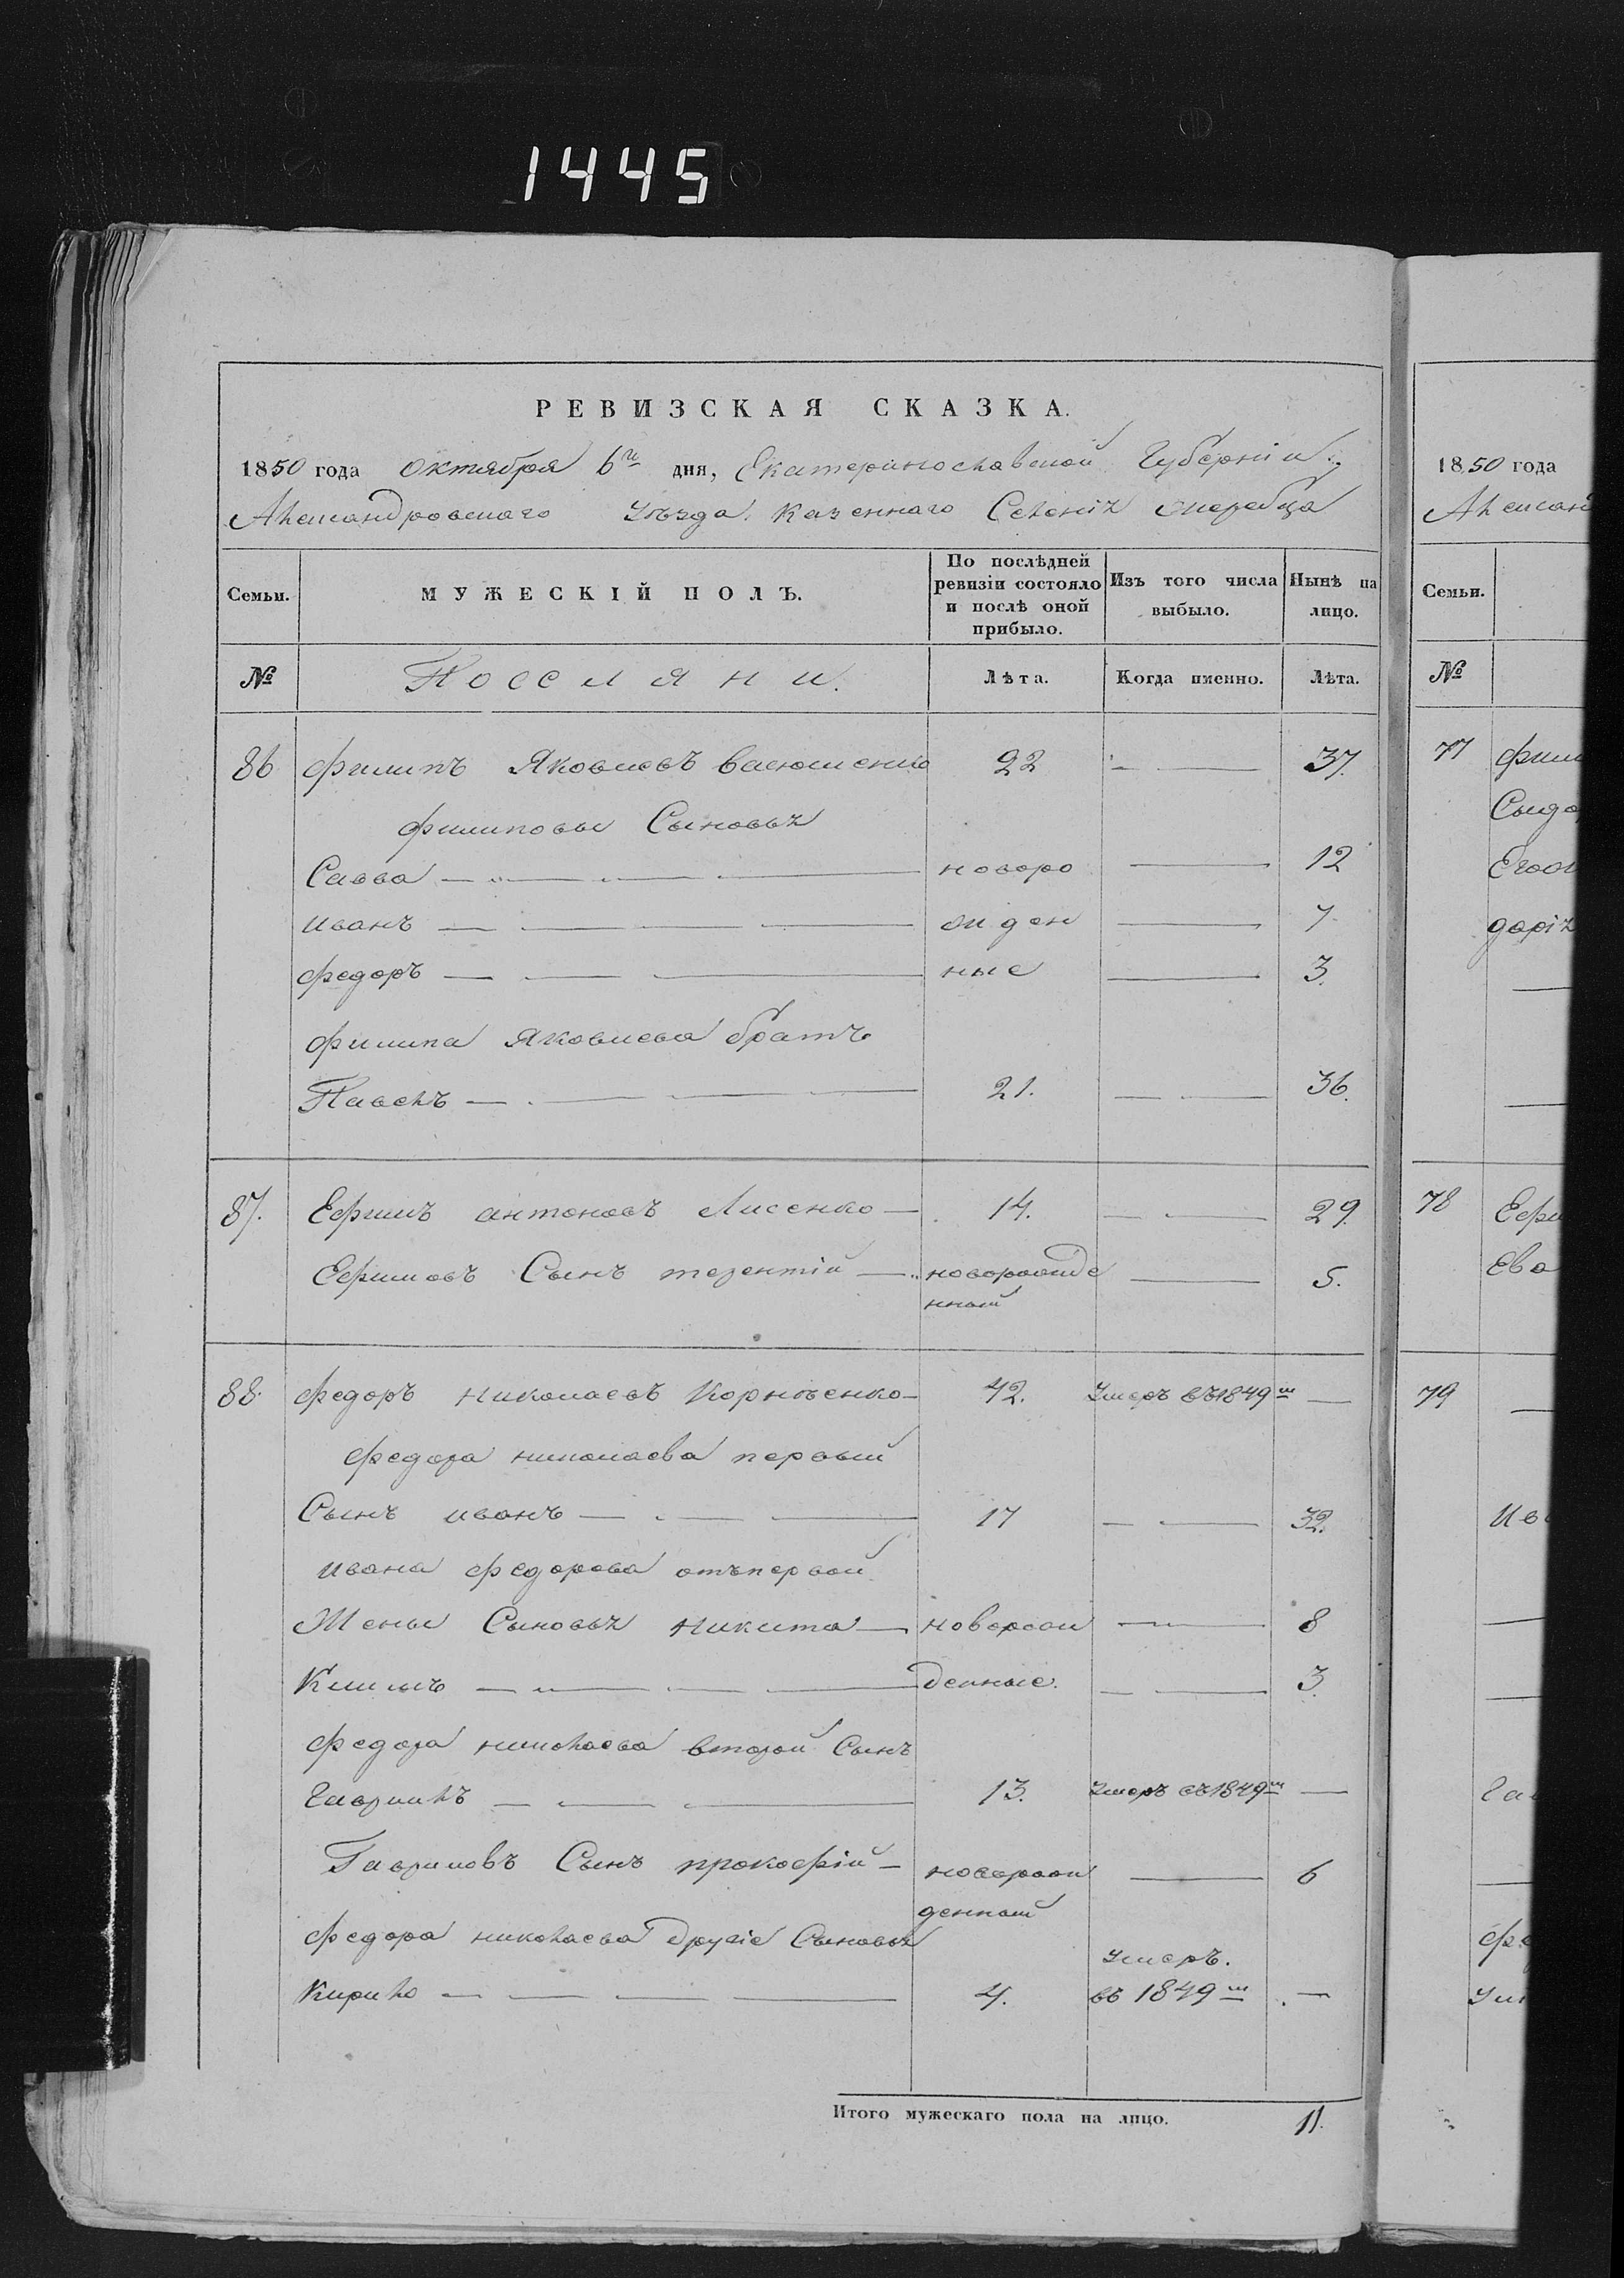 1445
РЕВИЗСКАЯ СКАЗКА.
1850 года октября 6го дня, Екатеринославской Губерніи
Александровскаго Уѣзда казеннаго Селенія жеребца
Семьи. МУЖЕСКІЙ ПОЛЪ. По послѣдней ревизіи состояло и послѣ оной прибыло. Изъ того числа выбыло. Нынѣ на лицо.
№ Поселяни. Лѣта. Когда именно. Лѣта.
86 филипъ Яковлевъ 22 — 37.
филиповы Сыновья
Савва — новоро — 12
иванъ — жден — 7.
федоръ — ные — 3.
филипа Яковлева братъ
Павелъ — 21. — 36.
87. Ефимъ антоновъ Лисенко — 14. — 29.
Ефимовъ Сынъ терентій — новорожде — 5.
нный
88. федоръ николаевъ Корнѣенко — 42. Умеръ въ 1849м —
федора николаева первый
Сынъ иванъ — 17 — 32.
ивана федорова отъ первой
Жены Сыновья никита — новорож — 8
Климъ — денные. — 3.
федора николаева второй Сынъ
Гаврилъ — 13. Умеръ въ 1849м —
Гавриловъ Сынъ прокофій — новорож — 6
денный
федора николаева другіе Сыновья
Умеръ.
Кирило — 4. въ 1849м —
Итого мужескаго пола на лицо. 11.
1850 года
Александ
Семьи.
№
77 фили
Сидо
дарія
78 Ефи
Ева
79
Ив
Га
Фе